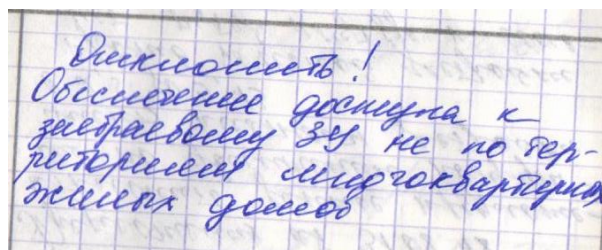 Отклонить!
Обеспечение доступа к
застраевому ЗУ не по тер-
риториям многоквартирных
жилых домов